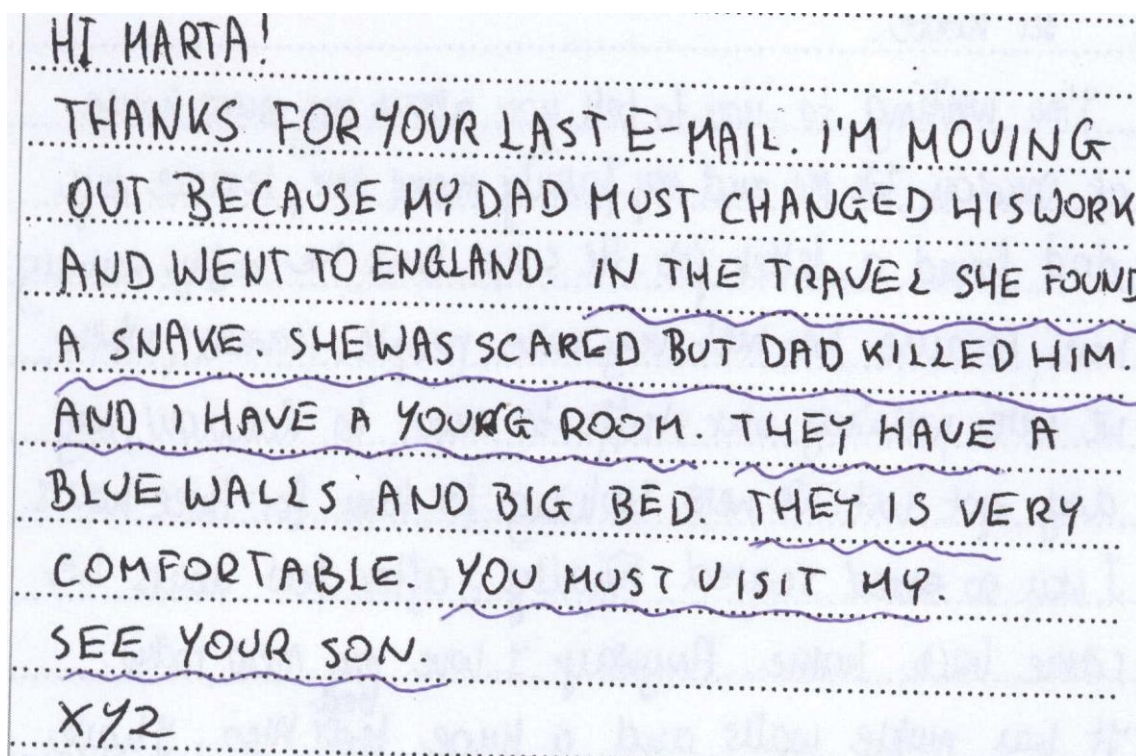 HI MARTA!
THANKS FOR YOUR LAST E-MAIL. I'M MOVING
OUT BECAUSE MY DAD MUST CHANGED HIS WORK
AND WENT TO ENGLAND. IN THE TRAVEL SHE FOUND
A SNAKE. SHE WAS SCARED BUT DAD KILLED HIM.
AND I HAVE A YOUNG ROOM. THEY HAVE A
BLUE WALLS AND BIG BED. THEY IS VERY
COMFORTABLE. YOU MUST VISIT MY.
SEE YOUR SON.
XYZ